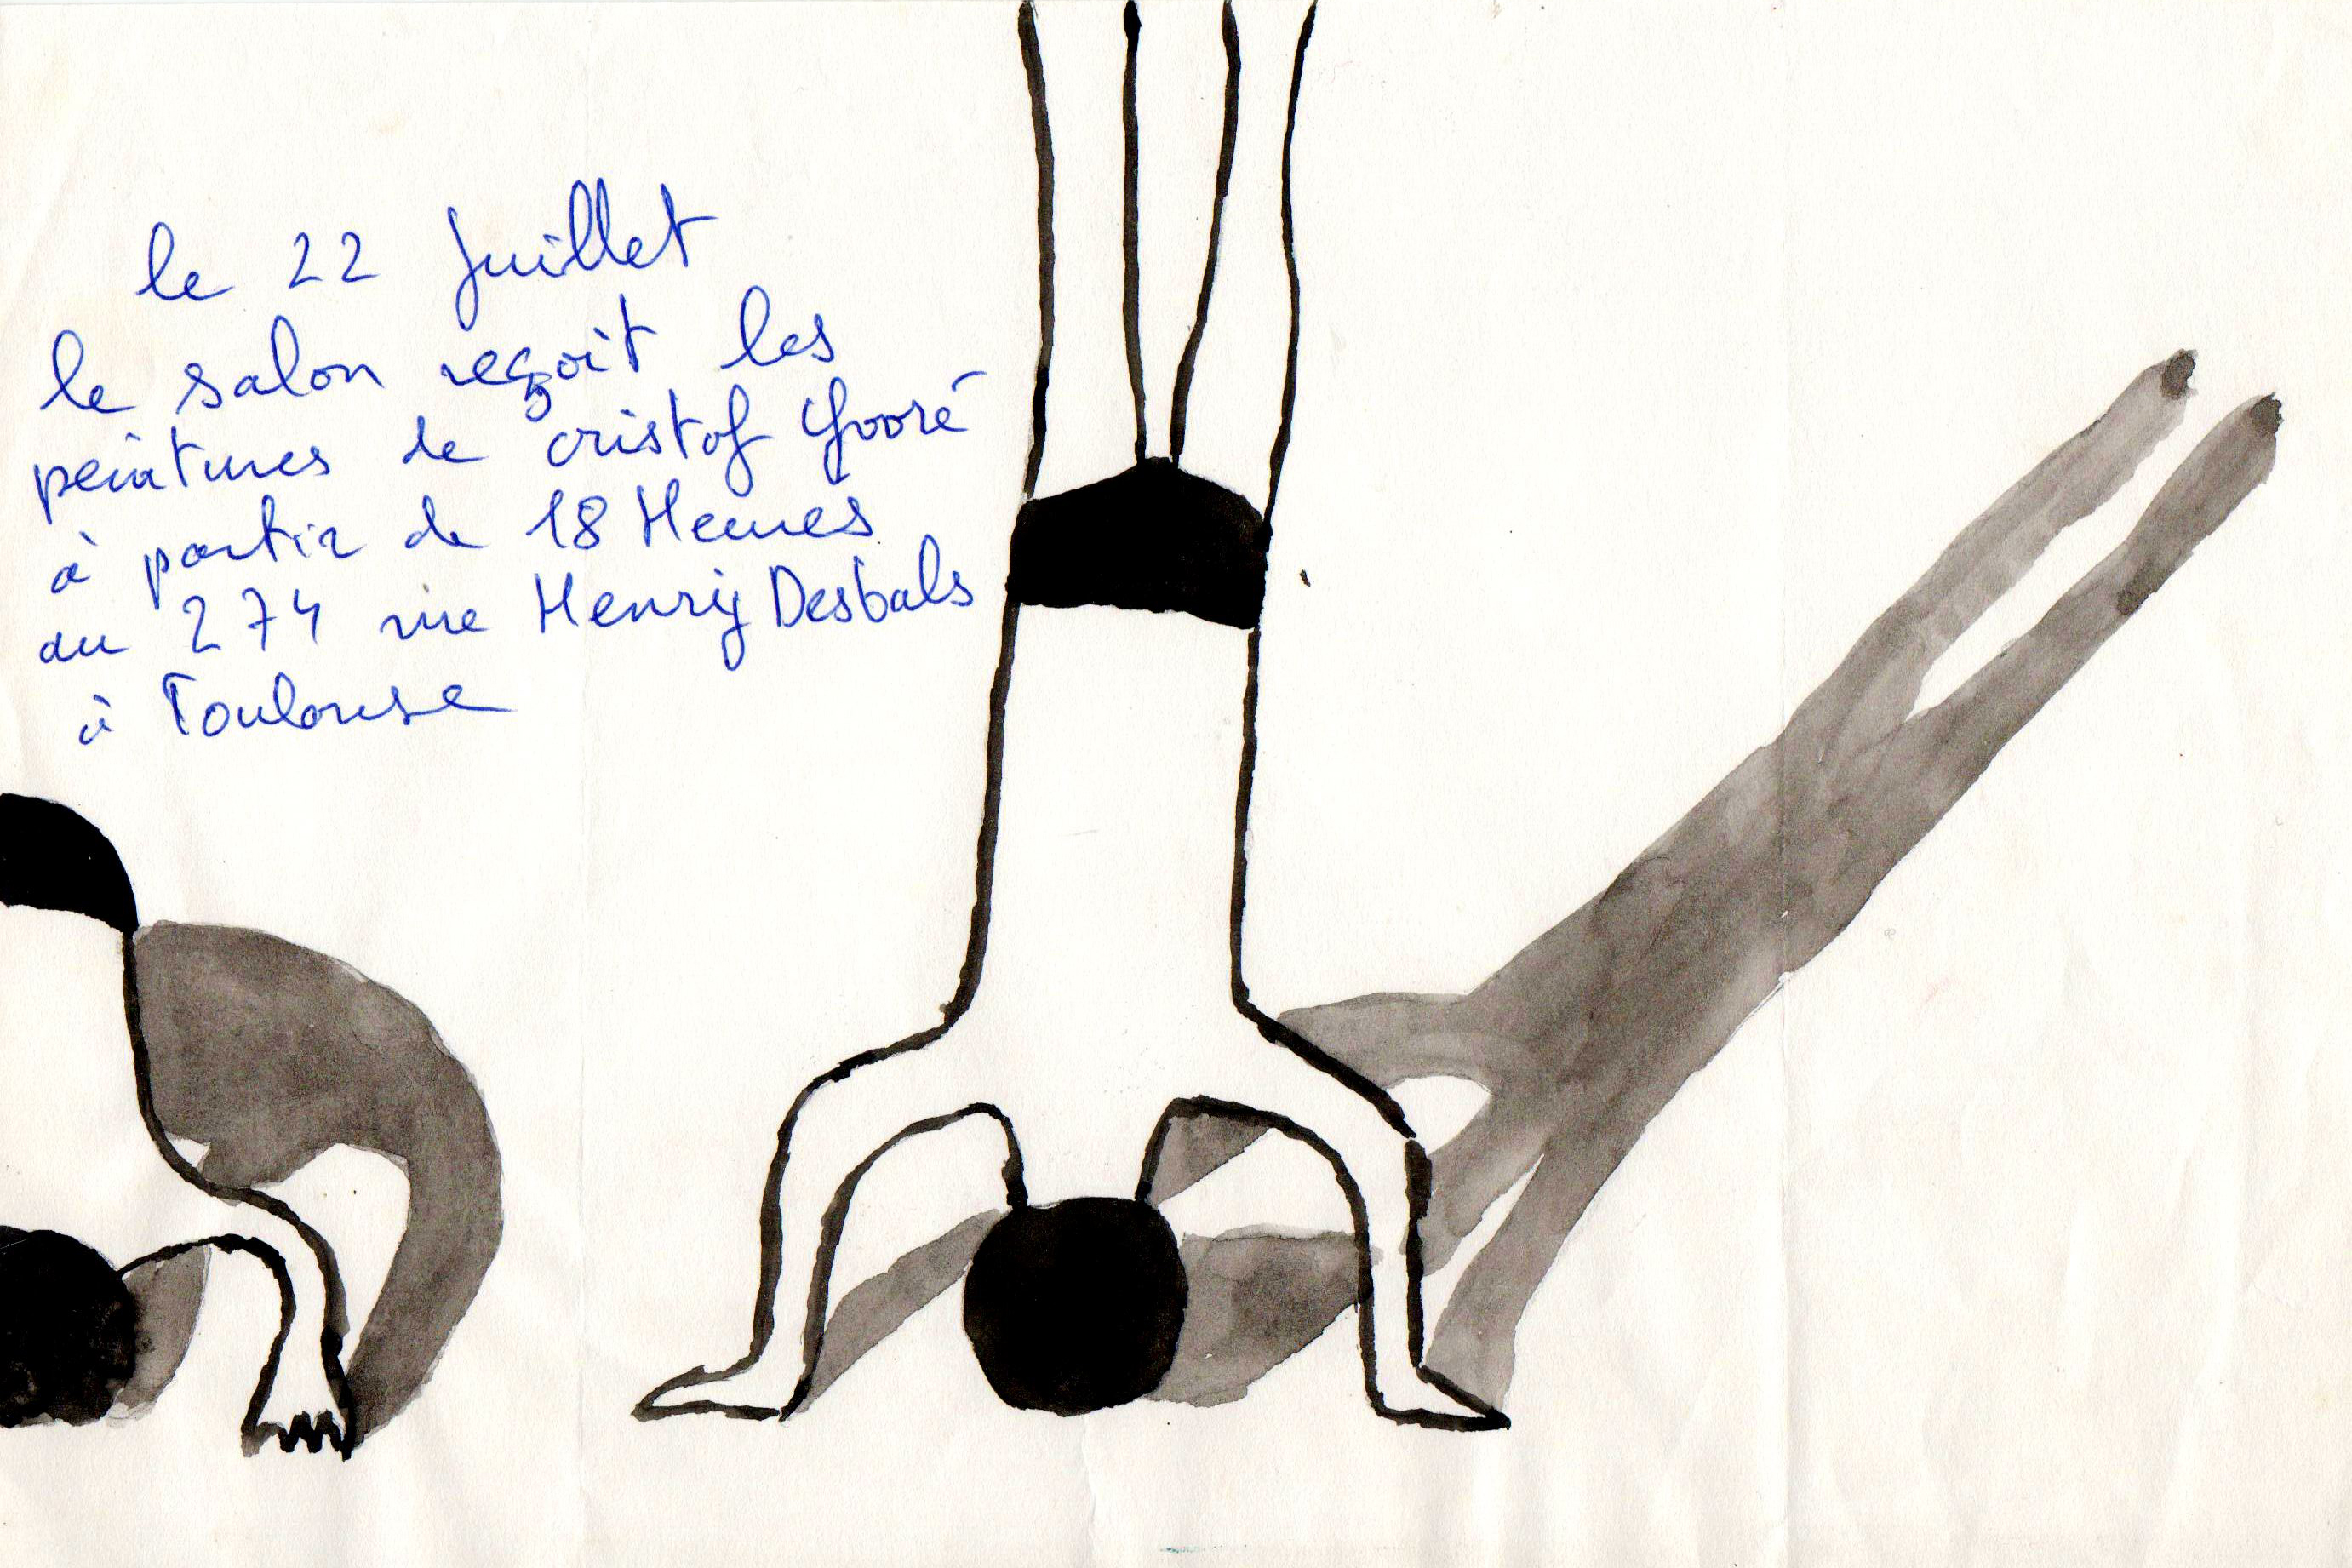 le 22 Juillet
le salon reçoit les
peintures de cristof Yvoré
à partir de 18 Heures
au 274 rue Henry Desbals
à Toulouse